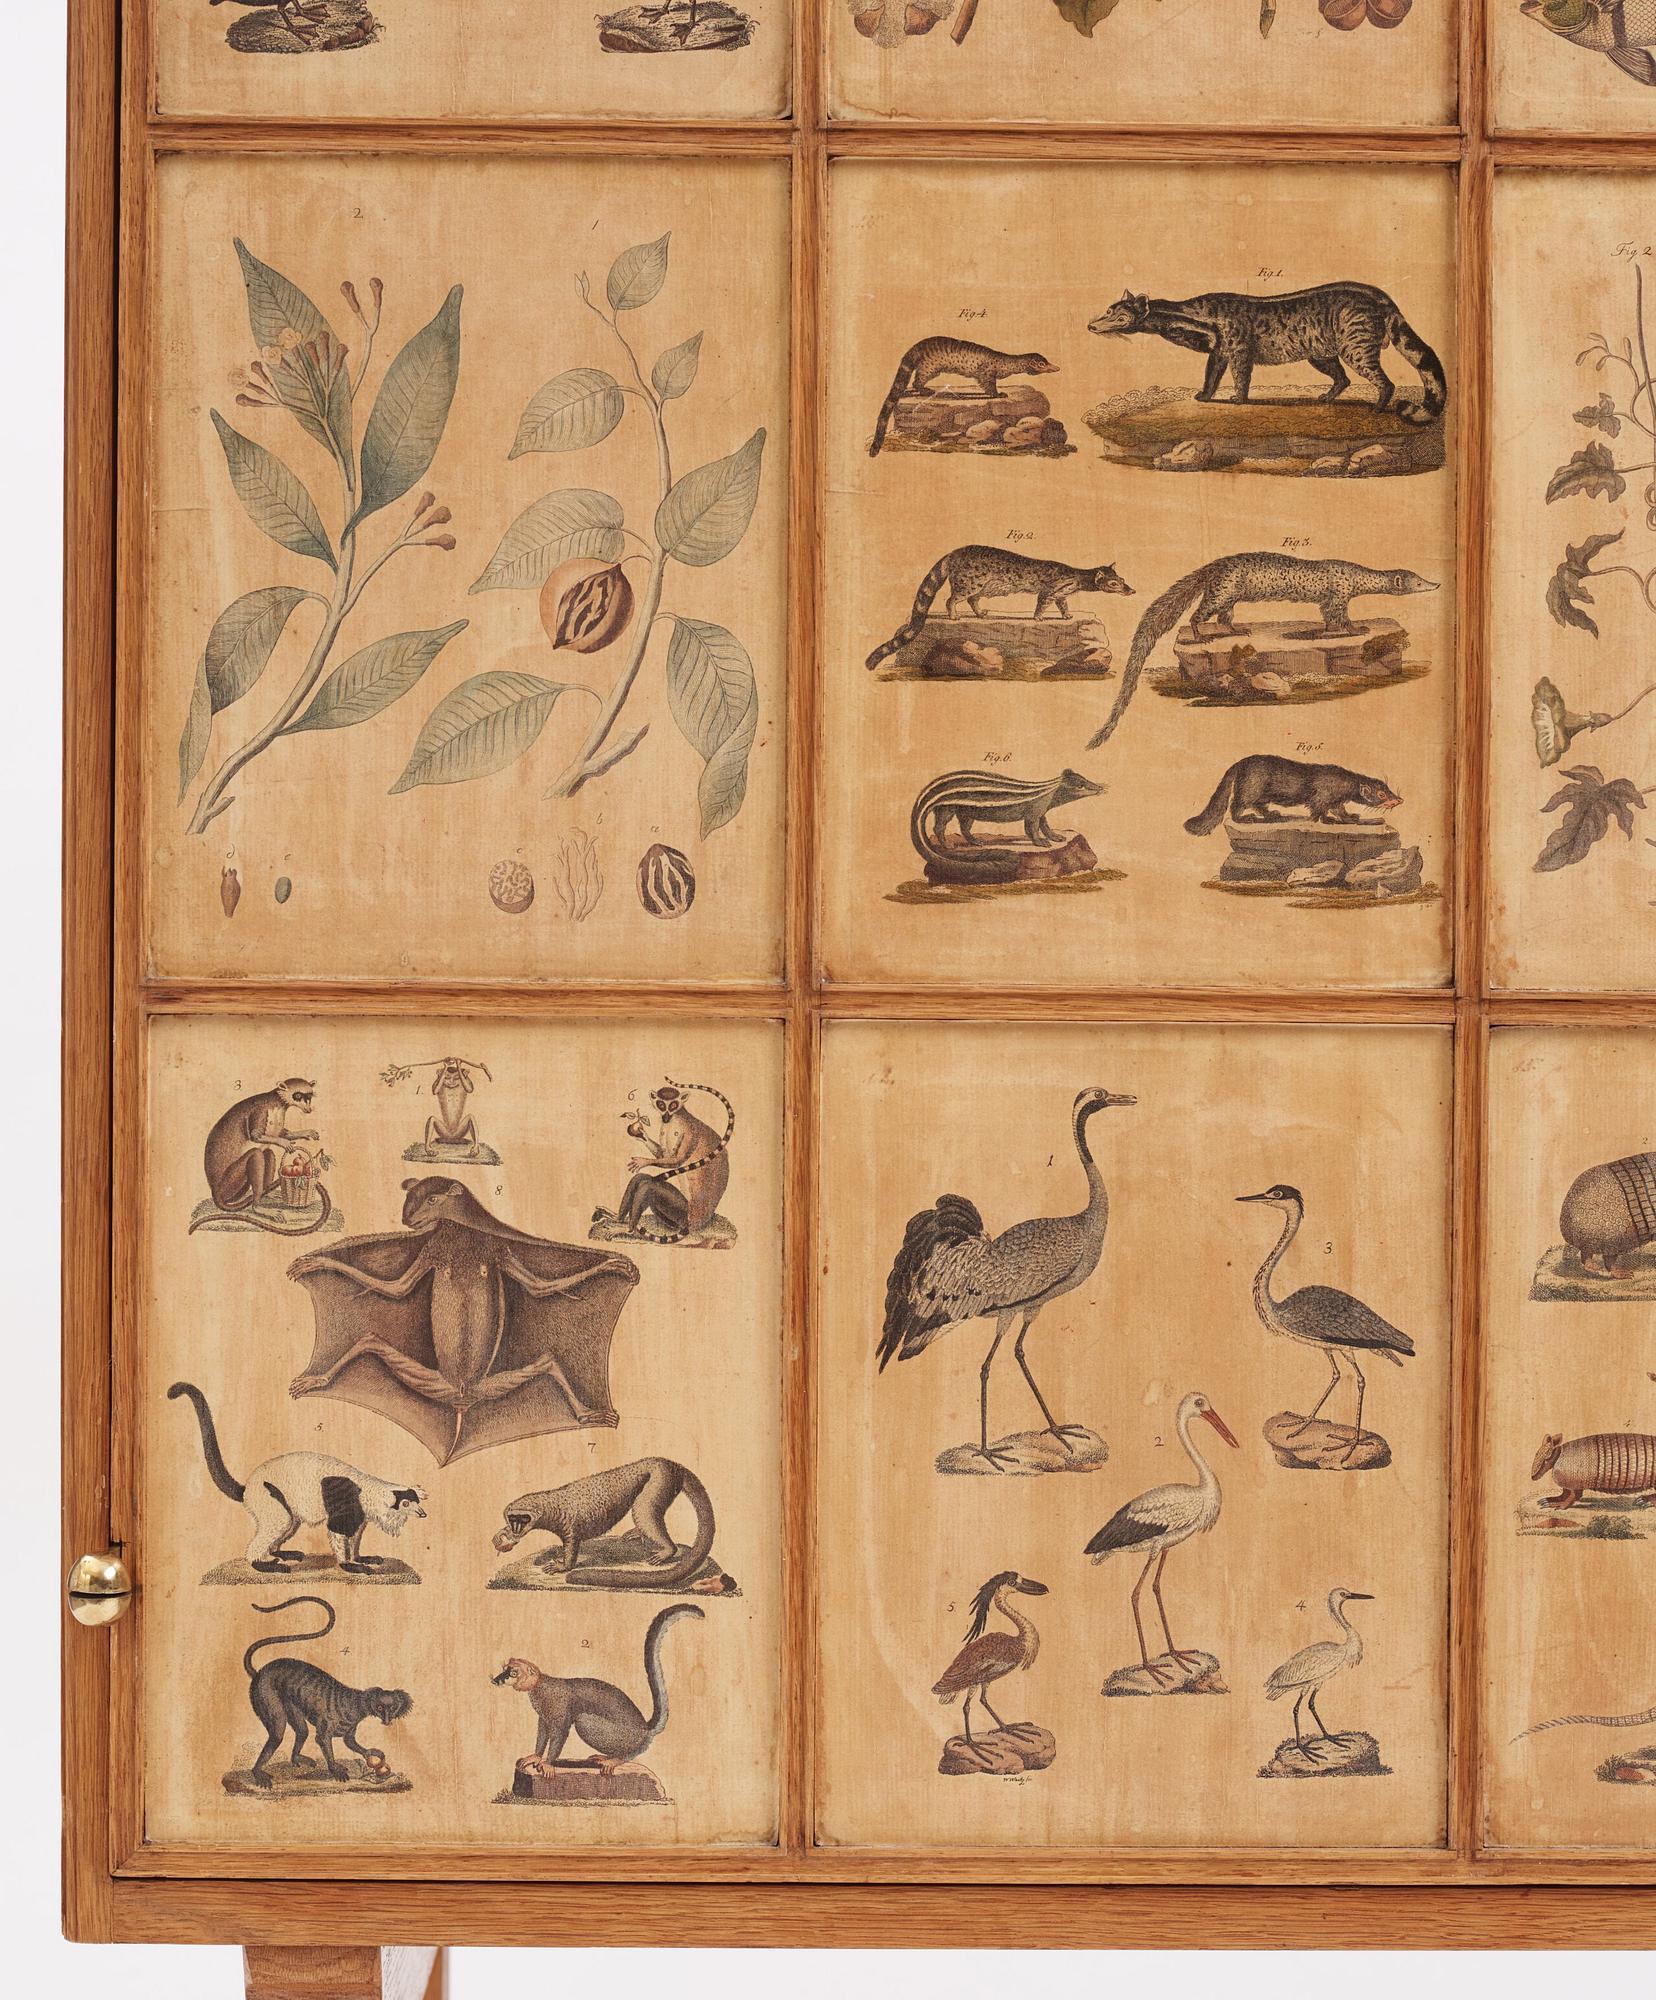 2
1
d
e
c
b
a
Fig. 1.
Fig. 4.
Fig. 2.
Fig. 3.
Fig. 6.
Fig. 5.
Fig. 2
3
1.
6
8
5.
7
4
2
1
3
2
5.
4.
2
4